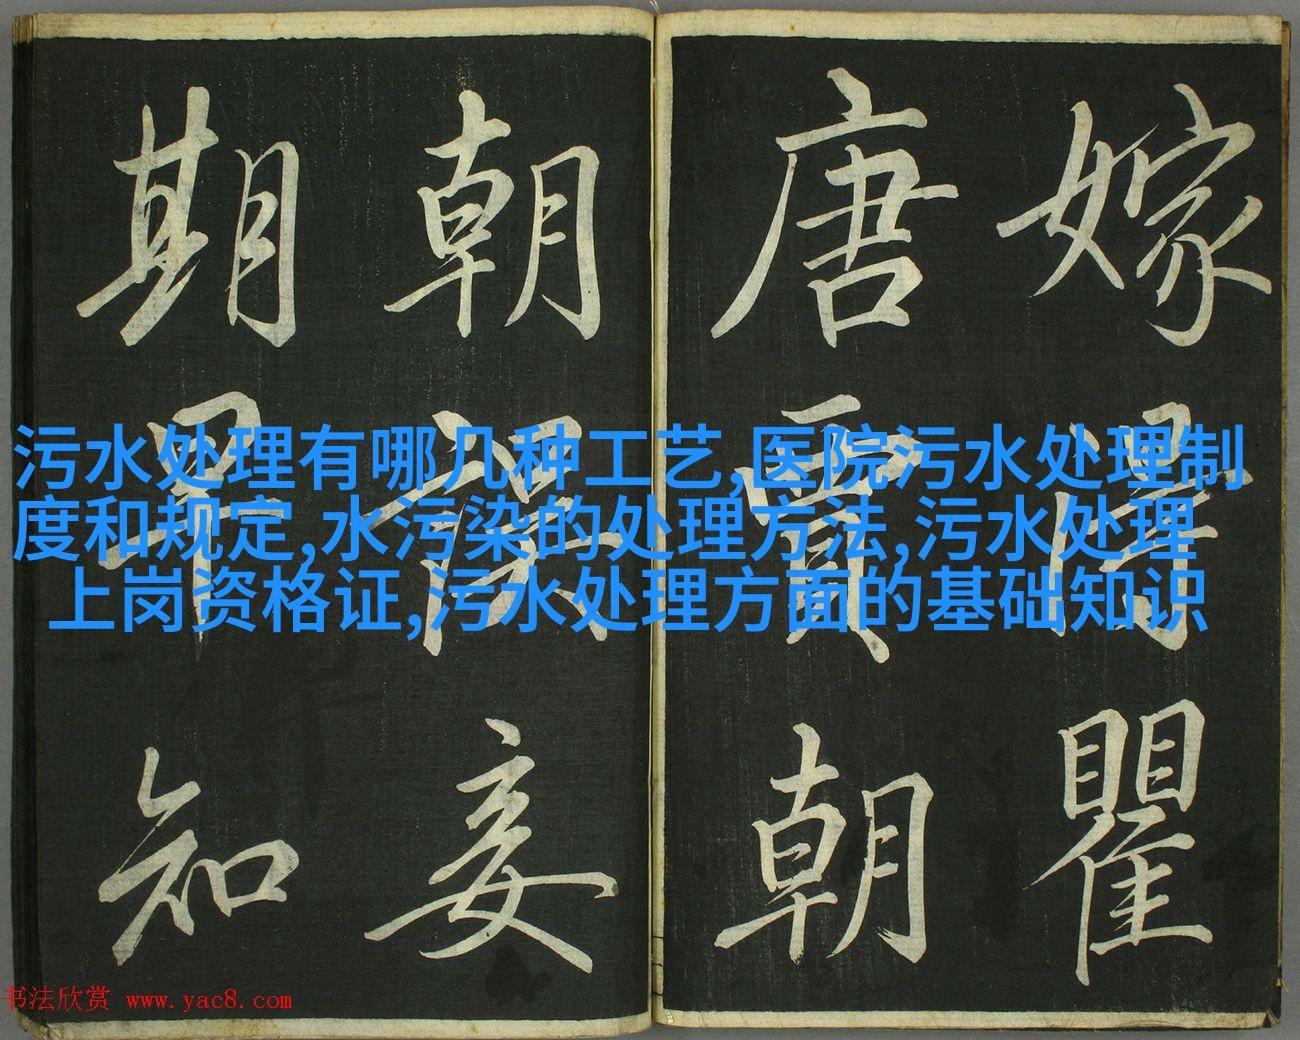 嫁得瞿
唐賈朝
朝誤妾
期早知
污水处理有哪几种工艺,医院污水处理制
度和规定,水污染的处理方法,污水处理
上岗资格证,污水处理方面的基础知识
书法欣赏 www.yac8.com